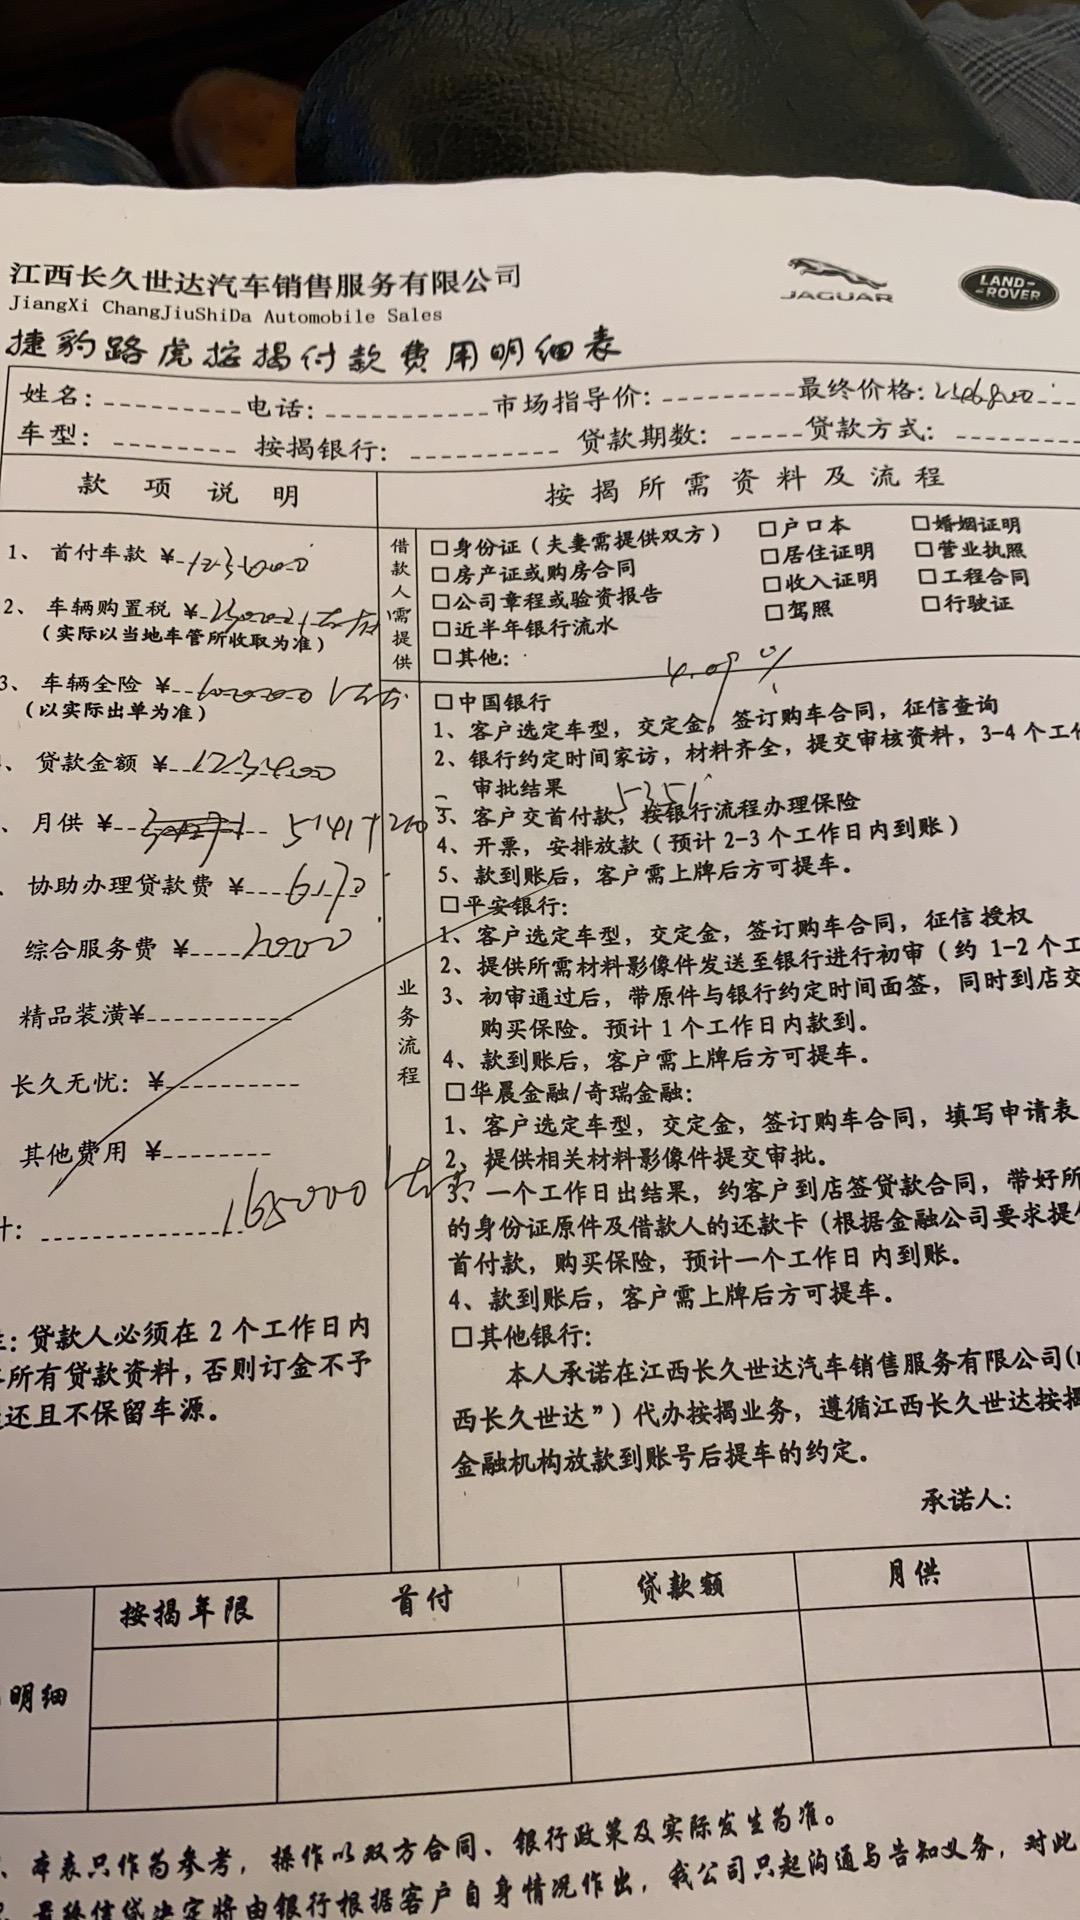 江西长久世达汽车销售服务有限公司
JiangXi ChangJiuShiDa Automobile Sales
JAGUAR
LAND-
-ROVER
捷豹路虎按揭付款费用明细表
姓名: 电话: 市场指导价: 最终价格:
车型: 按揭银行: 贷款期数: 贷款方式:
款项说明
按揭所需资料及流程
1、首付车款 ¥
2、车辆购置税 ¥
(实际以当地车管所收取为准)
3、车辆全险 ¥
(以实际出单为准)
、贷款金额 ¥
、月供 ¥ 5141+210
协助办理贷款费 ¥ 6170
综合服务费 ¥ 2000
精品装潢¥
长久无忧: ¥
其他费用 ¥
计: 165000 左右
注: 贷款人必须在 2 个工作日内
所有贷款资料, 否则订金不予
还且不保留车源。
借款人需提供
□身份证(夫妻需提供双方) □户口本 □婚姻证明
□房产证或购房合同 □居住证明 □营业执照
□公司章程或验资报告 □收入证明 □工程合同
□近半年银行流水 □驾照 □行驶证
□其他:
4.09%
业务流程
□中国银行
1、客户选定车型, 交定金, 签订购车合同, 征信查询
2、银行约定时间家访, 材料齐全, 提交审核资料, 3-4 个工作
审批结果 5351
3、客户交首付款, 按银行流程办理保险
4、开票, 安排放款(预计 2-3 个工作日内到账)
5、款到账后, 客户需上牌后方可提车。
□平安银行:
1、客户选定车型, 交定金, 签订购车合同, 征信授权
2、提供所需材料影像件发送至银行进行初审(约 1-2 个工
3、初审通过后, 带原件与银行约定时间面签, 同时到店交
购买保险。预计 1 个工作日内款到。
4、款到账后, 客户需上牌后方可提车。
□华晨金融/奇瑞金融:
1、客户选定车型, 交定金, 签订购车合同, 填写申请表
2、提供相关材料影像件提交审批。
3、一个工作日出结果, 约客户到店签贷款合同, 带好所
的身份证原件及借款人的还款卡(根据金融公司要求提供
首付款, 购买保险, 预计一个工作日内到账。
4、款到账后, 客户需上牌后方可提车。
□其他银行:
本人承诺在江西长久世达汽车销售服务有限公司(
西长久世达")代办按揭业务, 遵循江西长久世达按揭
金融机构放款到账号后提车的约定。
承诺人:
按揭年限 首付 贷款额 月供
明细
、本表只作为参考, 操作以双方合同、银行政策及实际发生为准。
、最终信贷决定将由银行根据客户自身情况作出, 我公司只起沟通与告知义务, 对此